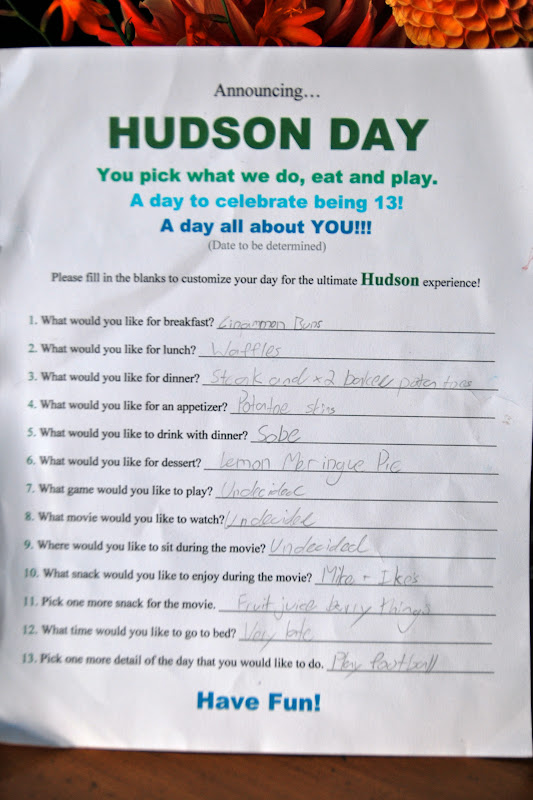 Announcing...
HUDSON DAY
You pick what we do, eat and play.
A day to celebrate being 13!
A day all about YOU!!!
(Date to be determined)
Please fill in the blanks to customize your day for the ultimate Hudson experience!
1. What would you like for breakfast? Cinnamon Buns
2. What would you like for lunch? Waffles
3. What would you like for dinner? Steak and x2 baked potatoes
4. What would you like for an appetizer? Potatoe skins
5. What would you like to drink with dinner? Sobe
6. What would you like for dessert? Lemon Maringue Pie
7. What game would you like to play? Undecided
8. What movie would you like to watch? Undecided
9. Where would you like to sit during the movie? Undecided
10. What snack would you like to enjoy during the movie? Mike + Ike's
11. Pick one more snack for the movie. Fruit juice berry things
12. What time would you like to go to bed? Very late
13. Pick one more detail of the day that you would like to do. Play football
Have Fun!